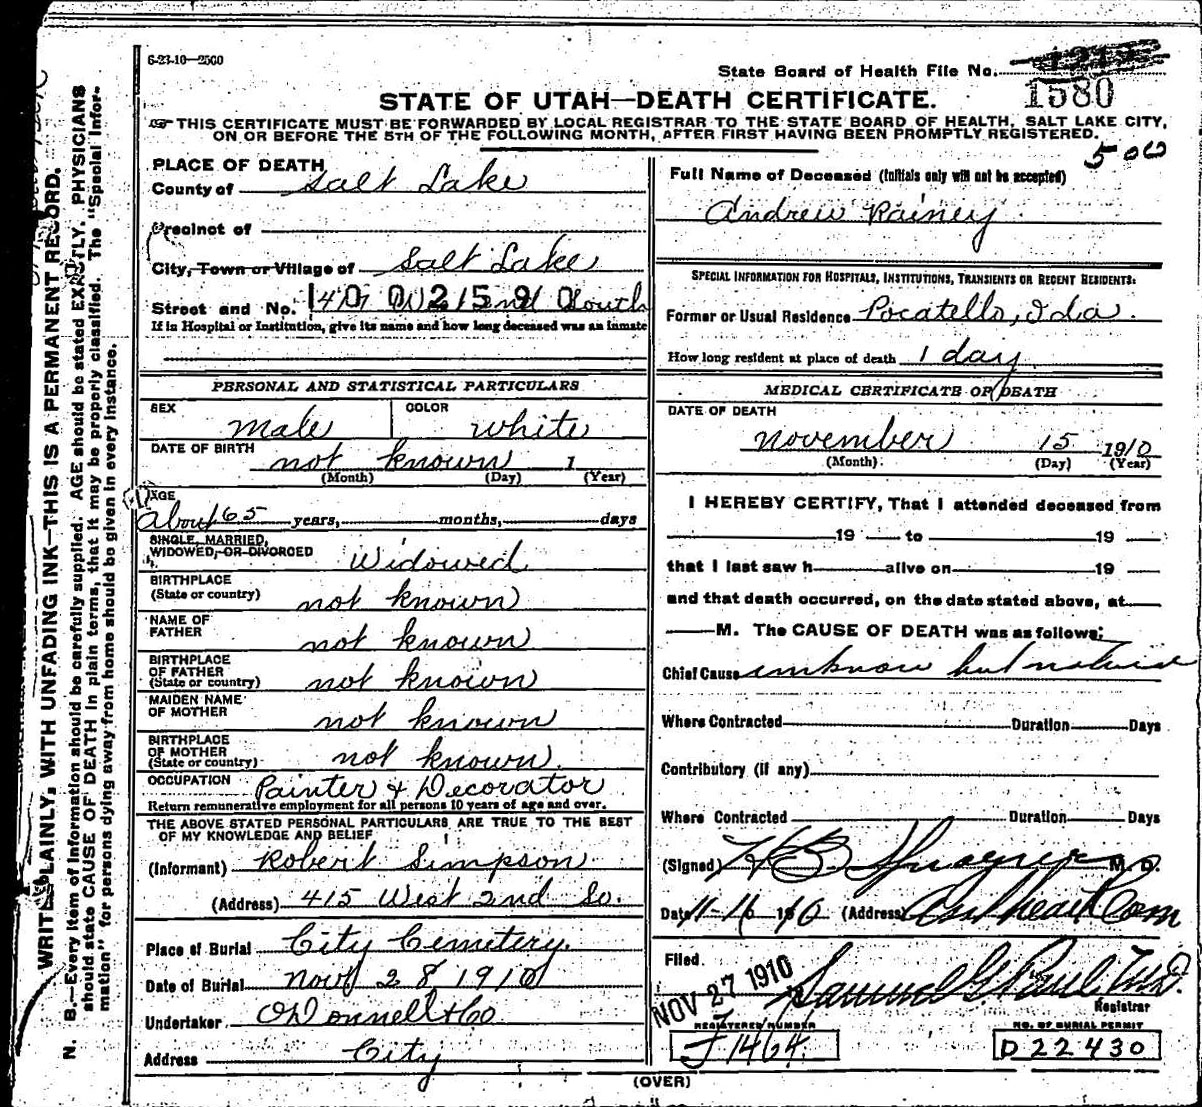 6-23-10—2500
State Board of Health File No.
1580
STATE OF UTAH—DEATH CERTIFICATE.
THIS CERTIFICATE MUST BE FORWARDED BY LOCAL REGISTRAR TO THE STATE BOARD OF HEALTH, SALT LAKE CITY,
ON OR BEFORE THE 5TH OF THE FOLLOWING MONTH, AFTER FIRST HAVING BEEN PROMPTLY REGISTERED.
500
WRITE PLAINLY, WITH UNFADING INK—THIS IS A PERMANENT RECORD.
N. B.—Every item of information should be carefully supplied. AGE should be stated EXACTLY. PHYSICIANS
should state CAUSE OF DEATH in plain terms, that it may be properly classified. The "Special Infor-
mation" for persons dying away from home should be given in every instance.
PLACE OF DEATH
County of Salt Lake
Precinct of
City, Town or Village of Salt Lake
Street and No. South
If in Hospital or Institution, give its name and how long deceased was an inmate
PERSONAL AND STATISTICAL PARTICULARS
SEX male COLOR white
DATE OF BIRTH not known 1
(Month) (Day) (Year)
AGE
About 65 years, months, days
SINGLE, MARRIED,
WIDOWED, OR DIVORCED Widowed
BIRTHPLACE
(State or country) not known
NAME OF
FATHER not known
BIRTHPLACE
OF FATHER
(State or country) not known
MAIDEN NAME
OF MOTHER not known
BIRTHPLACE
OF MOTHER
(State or country) not known
OCCUPATION Painter & Decorator
Return remunerative employment for all persons 10 years of age and over.
THE ABOVE STATED PERSONAL PARTICULARS ARE TRUE TO THE BEST
OF MY KNOWLEDGE AND BELIEF
(Informant) Robert Simpson
(Address) 415 West 2nd So.
Place of Burial City Cemetery.
Date of Burial Nov 28 1910
Undertaker O'Donnell & Co
Address City
Full Name of Deceased (Initials only will not be accepted)
Andrew Rainey
SPECIAL INFORMATION FOR HOSPITALS, INSTITUTIONS, TRANSIENTS OR RECENT RESIDENTS:
Former or Usual Residence Pocatello, Ida.
How long resident at place of death 1 day
MEDICAL CERTIFICATE OF DEATH
DATE OF DEATH
November 15 1910
(Month) (Day) (Year)
I HEREBY CERTIFY, That I attended deceased from
19 to 19
that I last saw h alive on 19
and that death occurred, on the date stated above, at
M. The CAUSE OF DEATH was as follows:
Chief Cause unknow but natural
Where Contracted Duration Days
Contributory (if any)
Where Contracted Duration Days
(Signed) H B. M. D.
Date 11-16 1910 (Address) Com
Filed
NOV 27 1910 Samuel G. Paul, M.D.
Registrar
REGISTERED NUMBER
J1464
NO. OF BURIAL PERMIT
D 22430
(OVER)